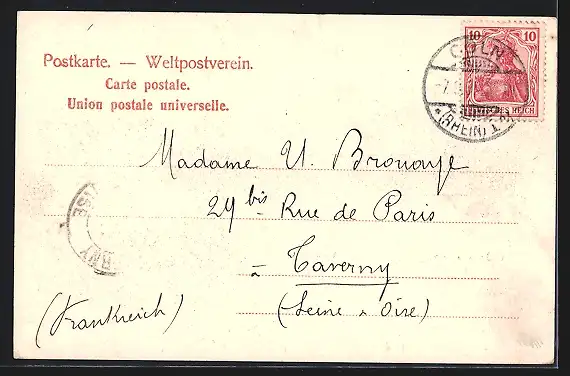 Postkarte. — Weltpostverein.
Carte postale.
Union postale universelle.
10 10
DEUTSCHES REICH
CÖLN
(RHEIN) 1
Madame U. Brouaye
29 bis Rue de Paris
= Taverny
(Seine & Oise)
(Frankreich)